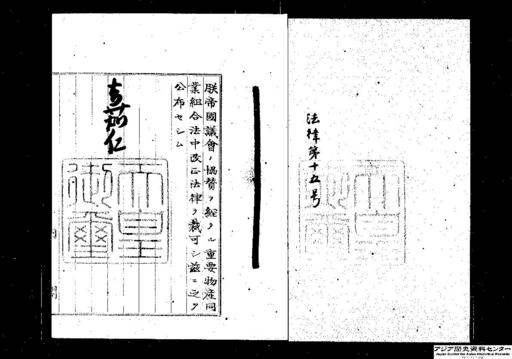 法律第十五号
朕帝國議會ノ協賛ヲ經タル重要物産同
業組合法中改正法律ヲ裁可シ茲ニ之ヲ
公布セシム
嘉仁
天皇
御璽
アジア歴史資料センター
Japan Center for Asian Historical Records